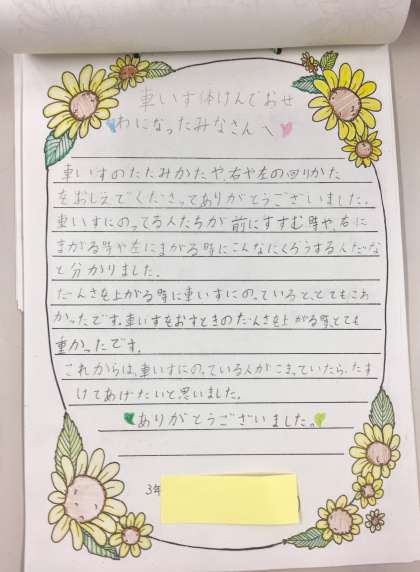 車いす体けんでおせ
わになったみなさんへ
車いすのたたみかたや、右や左の回りかた
をおしえてくださってありがとうございました。
車いすにのってる人たちが前にすすむ時や、右に
まがる時や左にまがる時にこんなにくろうするんだな
と分かりました。
だんさを上がる時に車いすにのっていると、とてもこわ
かったです。車いすをおすときのだんさを上がる時、とても
重かったです。
これからは、車いすにのっている人がこまっていたら、たす
けてあげたいと思いました。
ありがとうございました。
3年